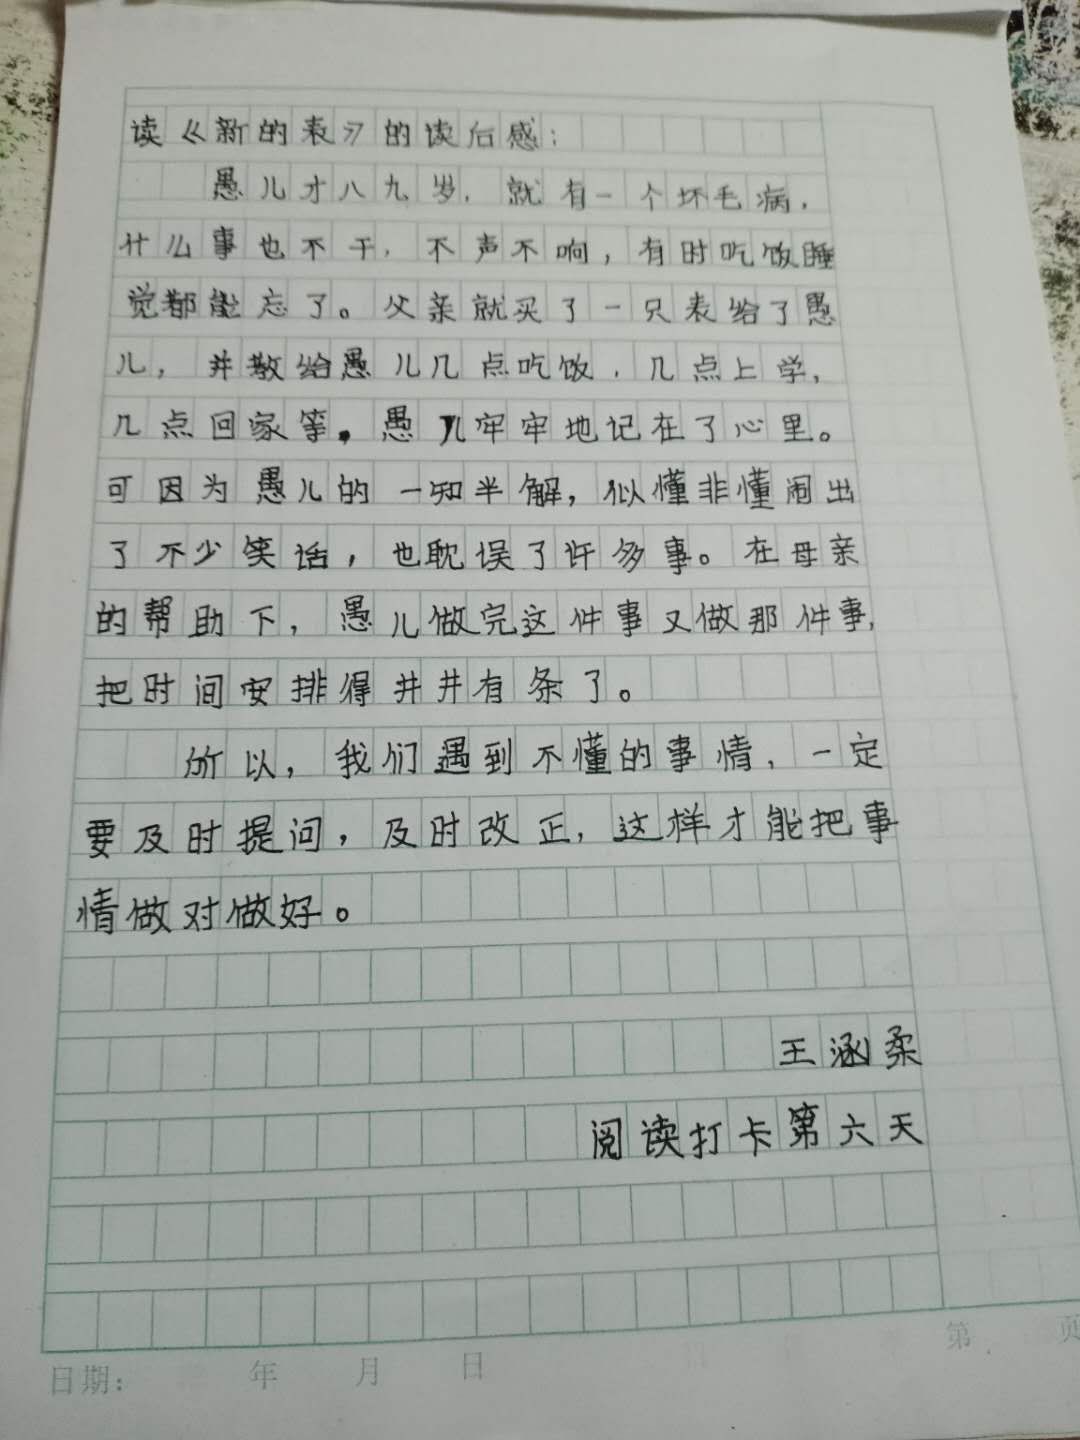 读《新的表》的读后感：
愚儿才八九岁，就有一个坏毛病，
什么事也不干，不声不响，有时吃饭睡
觉都能忘了。父亲就买了一只表给了愚
儿，并教给愚儿几点吃饭，几点上学，
几点回家等。愚儿牢牢地记在了心里。
可因为愚儿的一知半解，似懂非懂闹出
了不少笑话，也耽误了许多事。在母亲
的帮助下，愚儿做完这件事又做那件事，
把时间安排得井井有条了。
所以，我们遇到不懂的事情，一定
要及时提问，及时改正，这样才能把事
情做对做好。
王涵柔
阅读打卡第六天
第 页
日期： 年 月 日